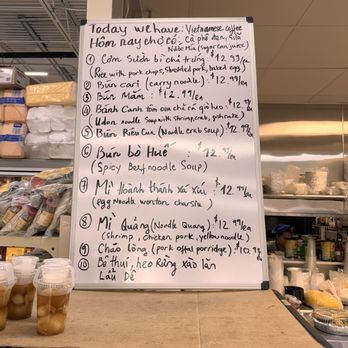 Today we have: Vietnamese coffee
Hôm nay chợ có: Cà phê đen, sữa
Nước Mía (Sugar can juice)
① Cơm sườn bì chả trứng: $12.99/ea
Rice with pork chops, shredded pork, baked egg
② Bún cari (carry noodle). $12.99/ea
③ Bún Mắm: $12.99/ea
④ Bánh Canh tôm cua chả cá giò heo: $12.99
Udon noodle Soup with shrimp, crab, fish cake
⑤ Bún Riêu Cua (Noodle crab soup) $12.99/ea
⑥ Bún bò Huế: $12.99/ea
(Spicy Beef noodle Soup)
⑦ Mì Hoành thánh xá xíu: $12.99/ea
(egg Noodle wonton charsiu)
⑧ Mì Quảng (Noodle Quang): $12.99/ea
(shrimp, chicken, pork, yellow noodle)
⑨ Cháo Lòng (pork offal porridge): $10.99/ea
⑩ Bò thui, heo Rừng xào lăn
Lẩu Dê